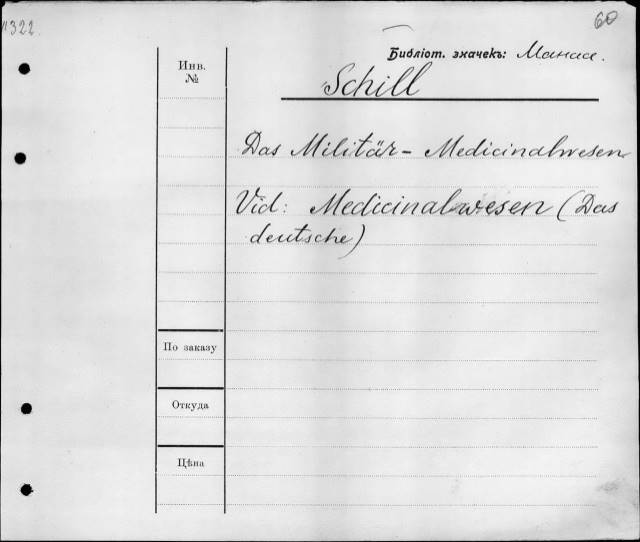 11322
60
Библіот. значекъ: Манаа.
Инв.
№
Schill
Das Militär - Medicinalwesen
Vid: Medicinalwesen (Das
deutsche)
По заказу
Откуда
Цѣна